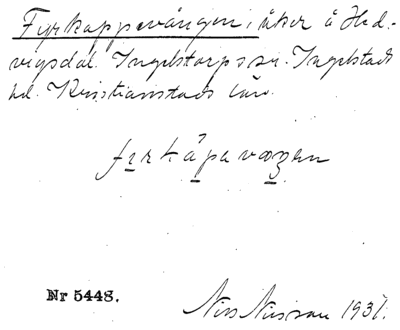 Fyrkappevången, åker å Hed-
vigsdal. Ingelstorps sn. Ingelstads
hd. Kristianstads län.
fyrkåpavɷŋen
Nr 5448.
Nils Nilsson 1931.